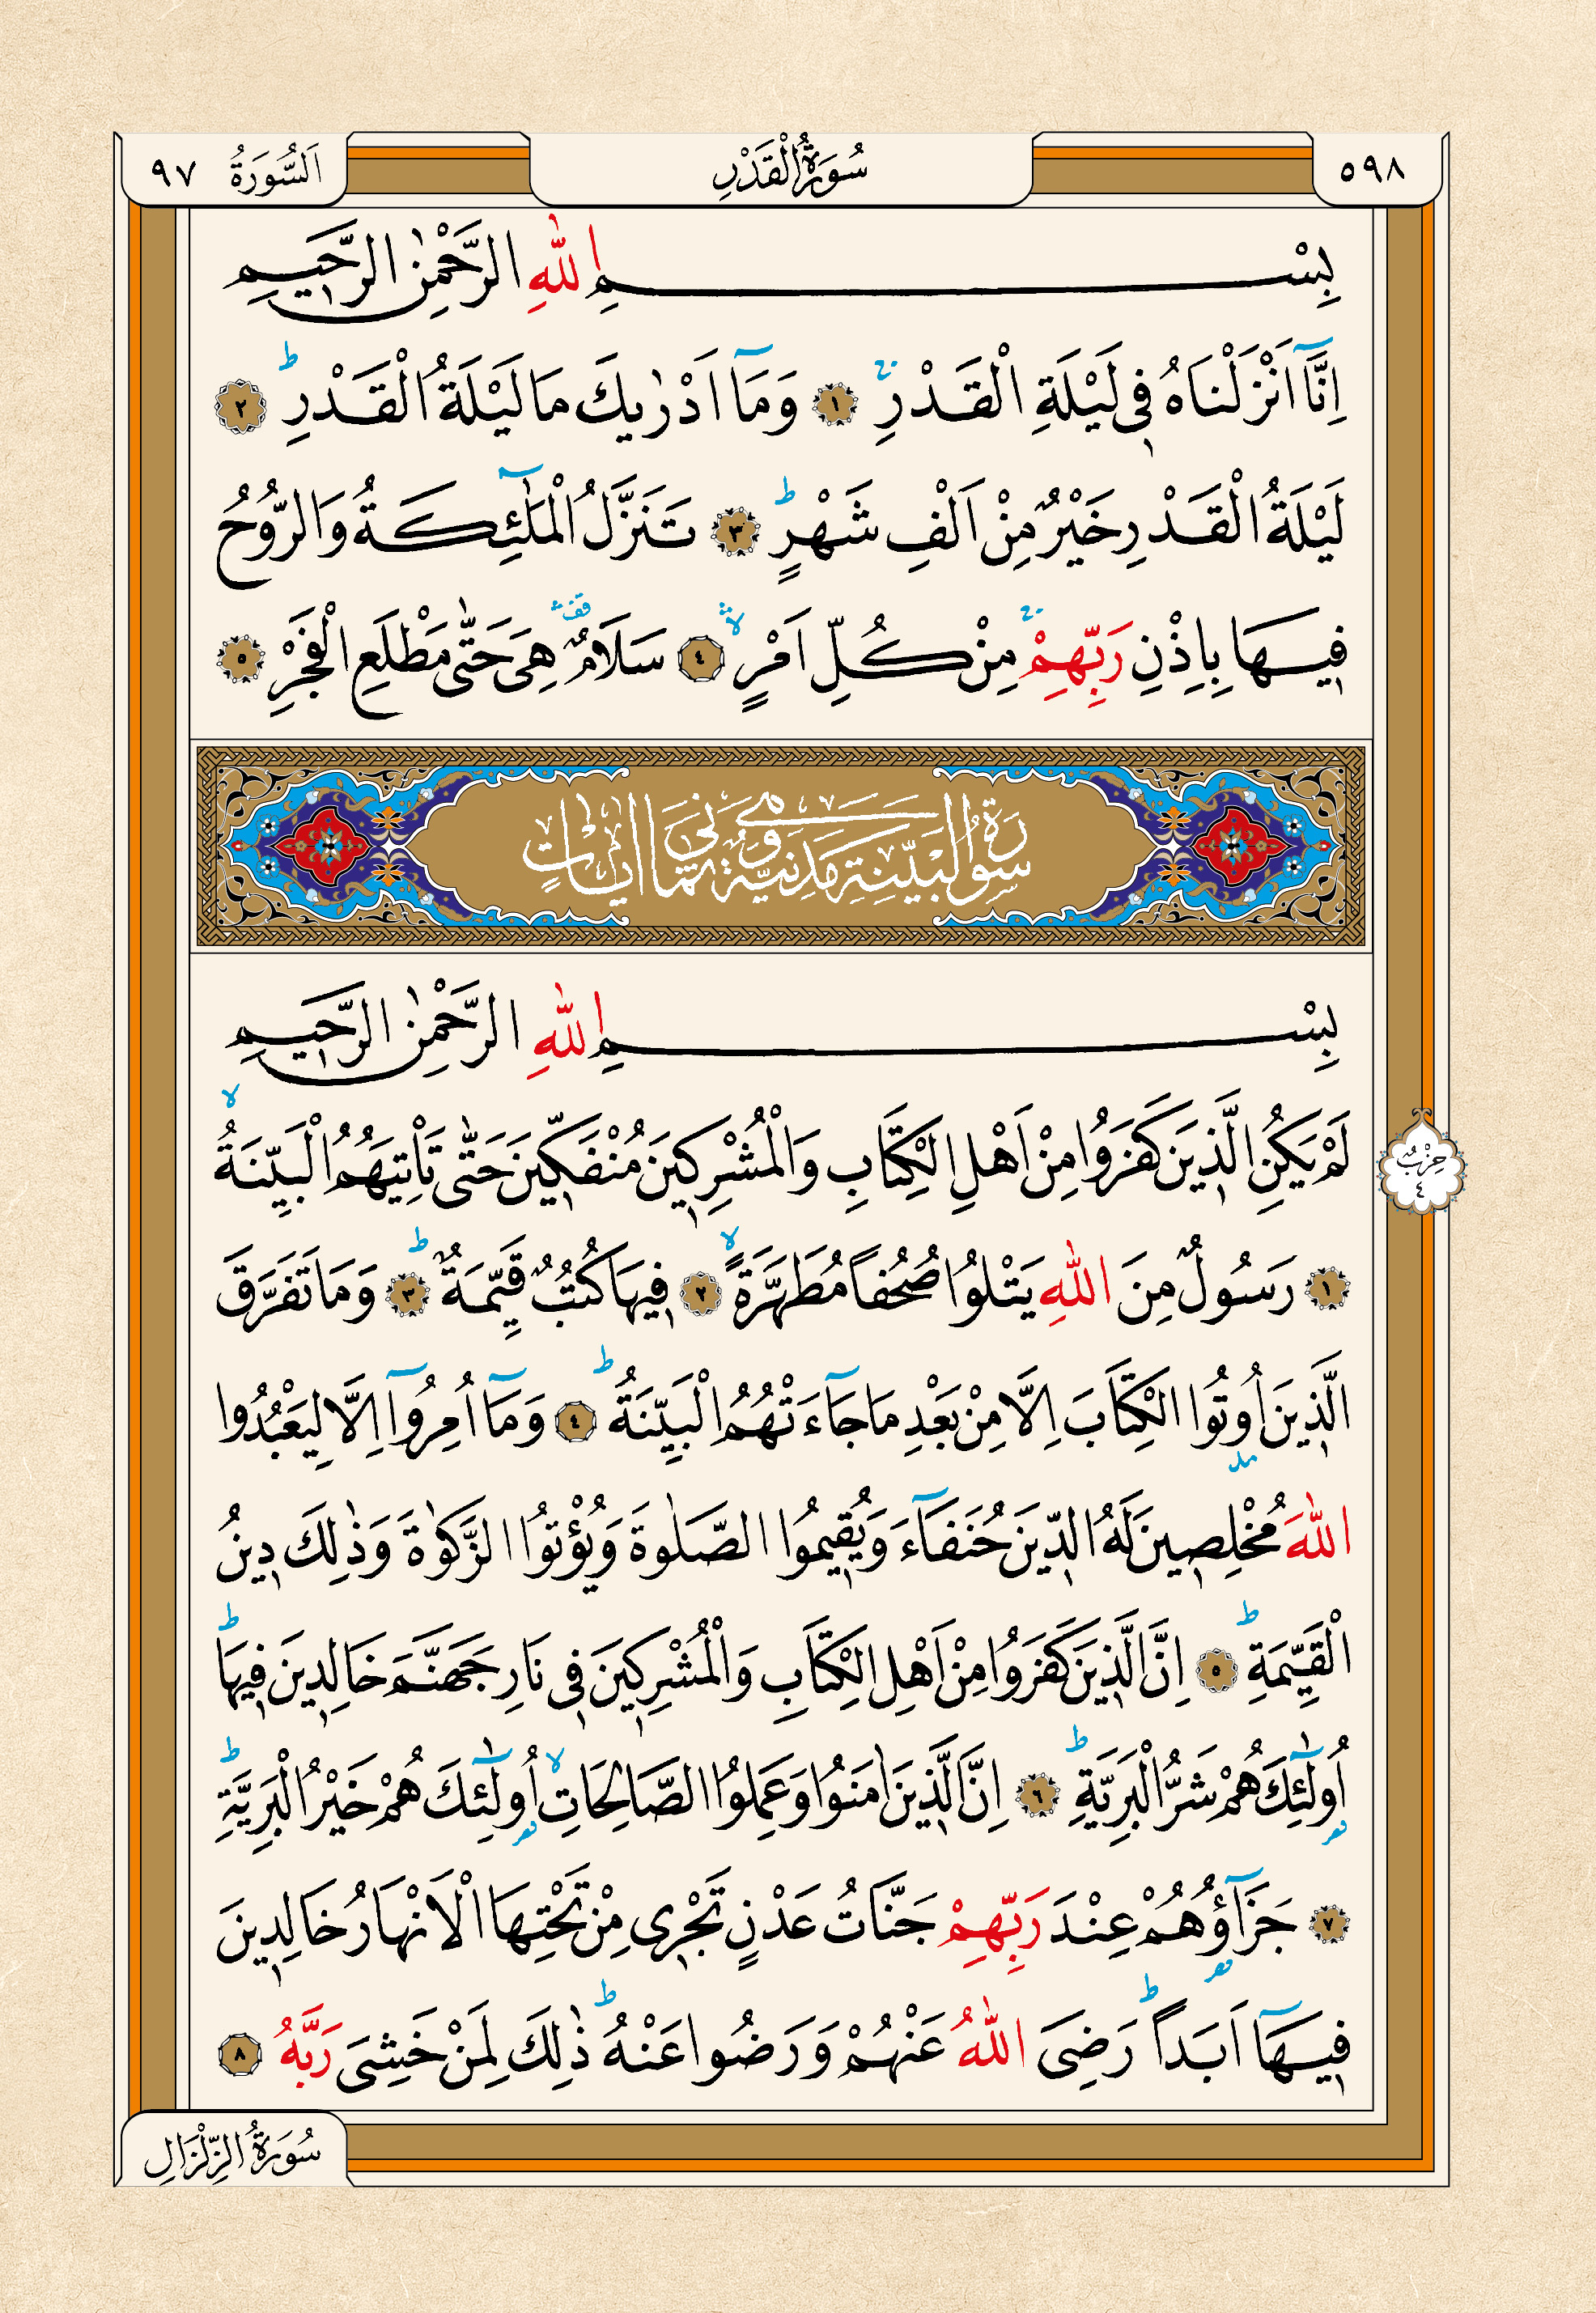 ٥٩٨
سُورَةُ الْقَدْرِ
اَلسُّورَةُ ٩٧
بِسْمِ اللّٰهِ الرَّحْمٰنِ الرَّحٖيمِ
اِنَّٓا اَنْزَلْنَاهُ فٖي لَيْلَةِ الْقَدْرِۚ ١ وَمَٓا اَدْرٰيكَ مَا لَيْلَةُ الْقَدْرِؕ ٢
لَيْلَةُ الْقَدْرِ خَيْرٌ مِنْ اَلْفِ شَهْرٍؕ ٣ تَنَزَّلُ الْمَلٰٓئِكَةُ وَالرُّوحُ
فٖيهَا بِاِذْنِ رَبِّهِمْۚ مِنْ كُلِّ اَمْرٍۙ ٤ سَلَامٌ هِيَ حَتّٰى مَطْلَعِ الْفَجْرِ ٥
سُورَةُ الْبَيِّنَةِ مَدَنِيَّةٌ وَهِيَ ثَمَانِي اٰيَاتٍ
بِسْمِ اللّٰهِ الرَّحْمٰنِ الرَّحٖيمِ
لَمْ يَكُنِ الَّذٖينَ كَفَرُوا مِنْ اَهْلِ الْكِتَابِ وَالْمُشْرِكٖينَ مُنْفَكّٖينَ حَتّٰى تَأْتِيَهُمُ الْبَيِّنَةُۙ
حِزْبٌ ٤
١ رَسُولٌ مِنَ اللّٰهِ يَتْلُوا صُحُفاً مُطَهَّرَةًۙ ٢ فٖيهَا كُتُبٌ قَيِّمَةٌؕ ٣ وَمَا تَفَرَّقَ
الَّذٖينَ اُوتُوا الْكِتَابَ اِلَّا مِنْ بَعْدِ مَا جَٓاءَتْهُمُ الْبَيِّنَةُؕ ٤ وَمَٓا اُمِرُٓوا اِلَّا لِيَعْبُدُوا
اللّٰهَ مُخْلِصٖينَ لَهُ الدّٖينَ حُنَفَٓاءَ وَيُقٖيمُوا الصَّلٰوةَ وَيُؤْتُوا الزَّكٰوةَ وَذٰلِكَ دٖينُ
الْقَيِّمَةِؕ ٥ اِنَّ الَّذٖينَ كَفَرُوا مِنْ اَهْلِ الْكِتَابِ وَالْمُشْرِكٖينَ فٖي نَارِ جَهَنَّمَ خَالِدٖينَ فٖيهَاؕ
اُولٰٓئِكَ هُمْ شَرُّ الْبَرِيَّةِؕ ٦ اِنَّ الَّذٖينَ اٰمَنُوا وَعَمِلُوا الصَّالِحَاتِۙ اُولٰٓئِكَ هُمْ خَيْرُ الْبَرِيَّةِؕ
٧ جَزَٓاؤُهُمْ عِنْدَ رَبِّهِمْ جَنَّاتُ عَدْنٍ تَجْرٖي مِنْ تَحْتِهَا الْاَنْهَارُ خَالِدٖينَ
فٖيهَٓا اَبَداًؕ رَضِيَ اللّٰهُ عَنْهُمْ وَرَضُوا عَنْهُؕ ذٰلِكَ لِمَنْ خَشِيَ رَبَّهُ ٨
سُورَةُ الزِّلْزَالِ